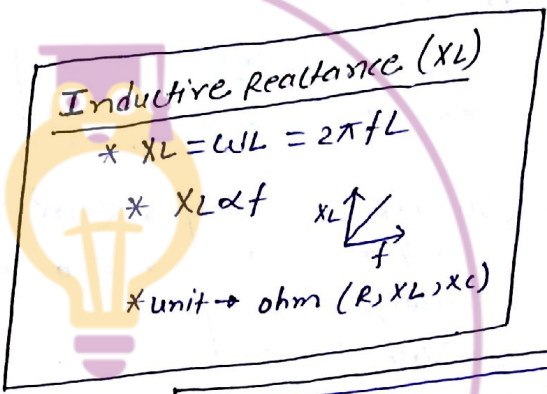 Inductive Reactance (XL)
* XL = ωL = 2πfL
* XL ∝ f
XL
f
* unit → ohm (R, XL, XC)